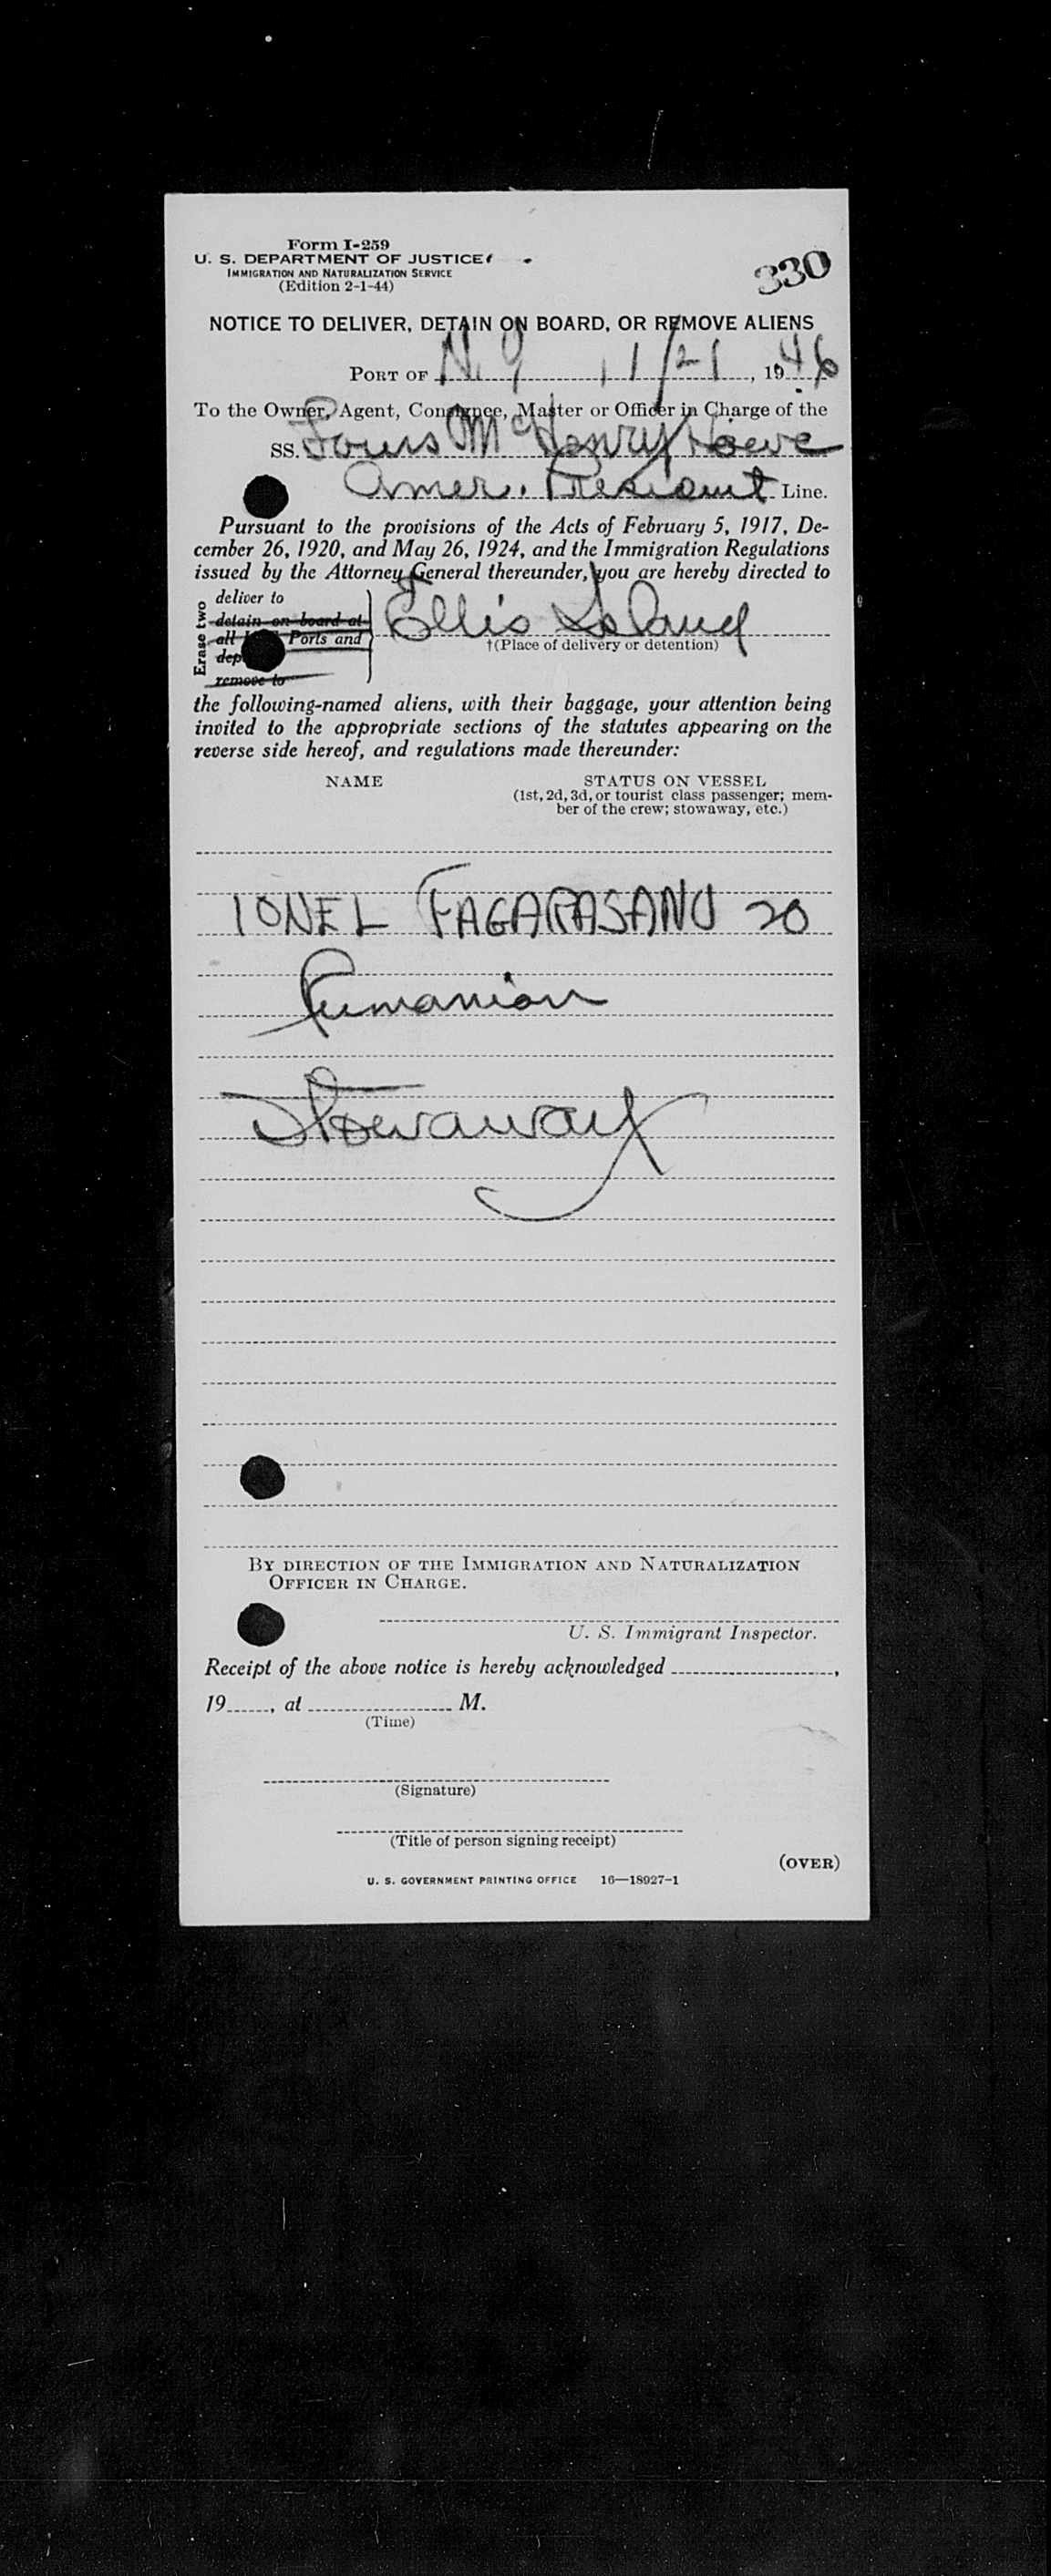 Form I-259
U. S. DEPARTMENT OF JUSTICE
IMMIGRATION AND NATURALIZATION SERVICE
(Edition 2-1-44)
330
NOTICE TO DELIVER, DETAIN ON BOARD, OR REMOVE ALIENS
PORT OF N.Y, 11/21, 1946
To the Owner, Agent, Consignee, Master or Officer in Charge of the
SS. Louis McHenry Howe
Amer. President Line.
Pursuant to the provisions of the Acts of February 5, 1917, De-
cember 26, 1920, and May 26, 1924, and the Immigration Regulations
issued by the Attorney General thereunder, you are hereby directed to
Erase two
deliver to
detain on board at
all Ports and
remove to
Ellis Island
†(Place of delivery or detention)
the following-named aliens, with their baggage, your attention being
invited to the appropriate sections of the statutes appearing on the
reverse side hereof, and regulations made thereunder:
NAME STATUS ON VESSEL
(1st, 2d, 3d, or tourist class passenger; mem-
ber of the crew; stowaway, etc.)
IONEL FAGARASANU 20
Rumanian
Stowaway
BY DIRECTION OF THE IMMIGRATION AND NATURALIZATION
OFFICER IN CHARGE.
U. S. Immigrant Inspector.
Receipt of the above notice is hereby acknowledged ,
19 , at M.
(Time)
(Signature)
(Title of person signing receipt)
(OVER)
U. S. GOVERNMENT PRINTING OFFICE 16—18927-1